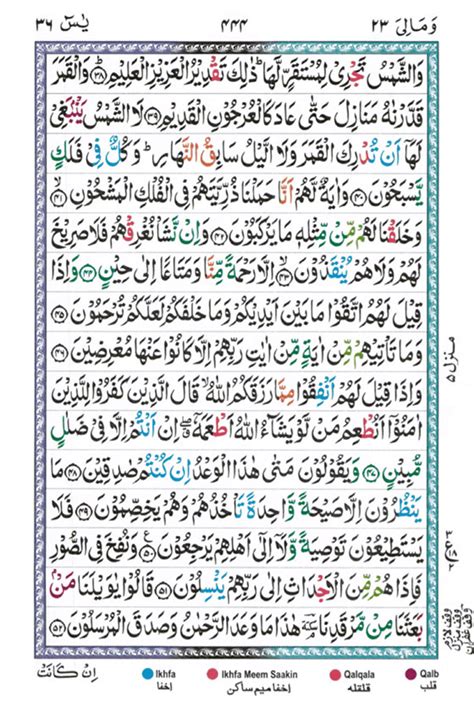 وَمَالِیَ ۲۳ ۴۴۴ یٰسٓ ۳۶
وَالشَّمْسُ تَجْرِیْ لِمُسْتَقَرٍّ لَّهَا ؕ ذٰلِکَ تَقْدِیْرُ الْعَزِیْزِ الْعَلِیْمِ ﴿۳۸﴾ وَالْقَمَرَ
قَدَّرْنٰهُ مَنَازِلَ حَتّٰی عَادَ کَالْعُرْجُوْنِ الْقَدِیْمِ ﴿۳۹﴾ لَا الشَّمْسُ یَنْۢبَغِیْ
لَهَاۤ اَنْ تُدْرِکَ الْقَمَرَ وَلَا الَّیْلُ سَابِقُ النَّهَارِ ؕ وَکُلٌّ فِیْ فَلَکٍ
یَّسْبَحُوْنَ ﴿۴۰﴾ وَاٰیَةٌ لَّهُمْ اَنَّا حَمَلْنَا ذُرِّیَّتَهُمْ فِی الْفُلْکِ الْمَشْحُوْنِ ﴿۴۱﴾
وَخَلَقْنَا لَهُمْ مِّنْ مِّثْلِهٖ مَا یَرْکَبُوْنَ ﴿۴۲﴾ وَاِنْ نَّشَاْ نُغْرِقْهُمْ فَلَا صَرِیْخَ
لَهُمْ وَلَا هُمْ یُنْقَذُوْنَ ﴿۴۳﴾ اِلَّا رَحْمَةً مِّنَّا وَمَتَاعًا اِلٰی حِیْنٍ ﴿۴۴﴾ وَاِذَا
قِیْلَ لَهُمُ اتَّقُوْا مَا بَیْنَ اَیْدِیْکُمْ وَمَا خَلْفَکُمْ لَعَلَّکُمْ تُرْحَمُوْنَ ﴿۴۵﴾
وَمَا تَاْتِیْهِمْ مِّنْ اٰیَةٍ مِّنْ اٰیٰتِ رَبِّهِمْ اِلَّا کَانُوْا عَنْهَا مُعْرِضِیْنَ ﴿۴۶﴾
وَاِذَا قِیْلَ لَهُمْ اَنْفِقُوْا مِمَّا رَزَقَکُمُ اللّٰهُ ۙ قَالَ الَّذِیْنَ کَفَرُوْا لِلَّذِیْنَ
اٰمَنُوْۤا اَنُطْعِمُ مَنْ لَّوْ یَشَآءُ اللّٰهُ اَطْعَمَهٗۤ ۖ اِنْ اَنْتُمْ اِلَّا فِیْ ضَلٰلٍ
مُّبِیْنٍ ﴿۴۷﴾ وَیَقُوْلُوْنَ مَتٰی هٰذَا الْوَعْدُ اِنْ کُنْتُمْ صٰدِقِیْنَ ﴿۴۸﴾ مَا
یَنْظُرُوْنَ اِلَّا صَیْحَةً وَّاحِدَةً تَاْخُذُهُمْ وَهُمْ یَخِصِّمُوْنَ ﴿۴۹﴾ فَلَا
یَسْتَطِیْعُوْنَ تَوْصِیَةً وَّلَاۤ اِلٰۤی اَهْلِهِمْ یَرْجِعُوْنَ ﴿۵۰﴾ وَنُفِخَ فِی الصُّوْرِ
فَاِذَا هُمْ مِّنَ الْاَجْدَاثِ اِلٰی رَبِّهِمْ یَنْسِلُوْنَ ﴿۵۱﴾ قَالُوْا یٰوَیْلَنَا مَنْۢ
بَعَثَنَا مِنْ مَّرْقَدِنَا ۘ هٰذَا مَا وَعَدَ الرَّحْمٰنُ وَصَدَقَ الْمُرْسَلُوْنَ ﴿۵۲﴾
منزل ۵
Ikhfa اخفا
Ikhfa Meem Saakin اخفا میم ساکن
Qalqala قلقله
Qalb قلب
اِنْ كَانَتْ